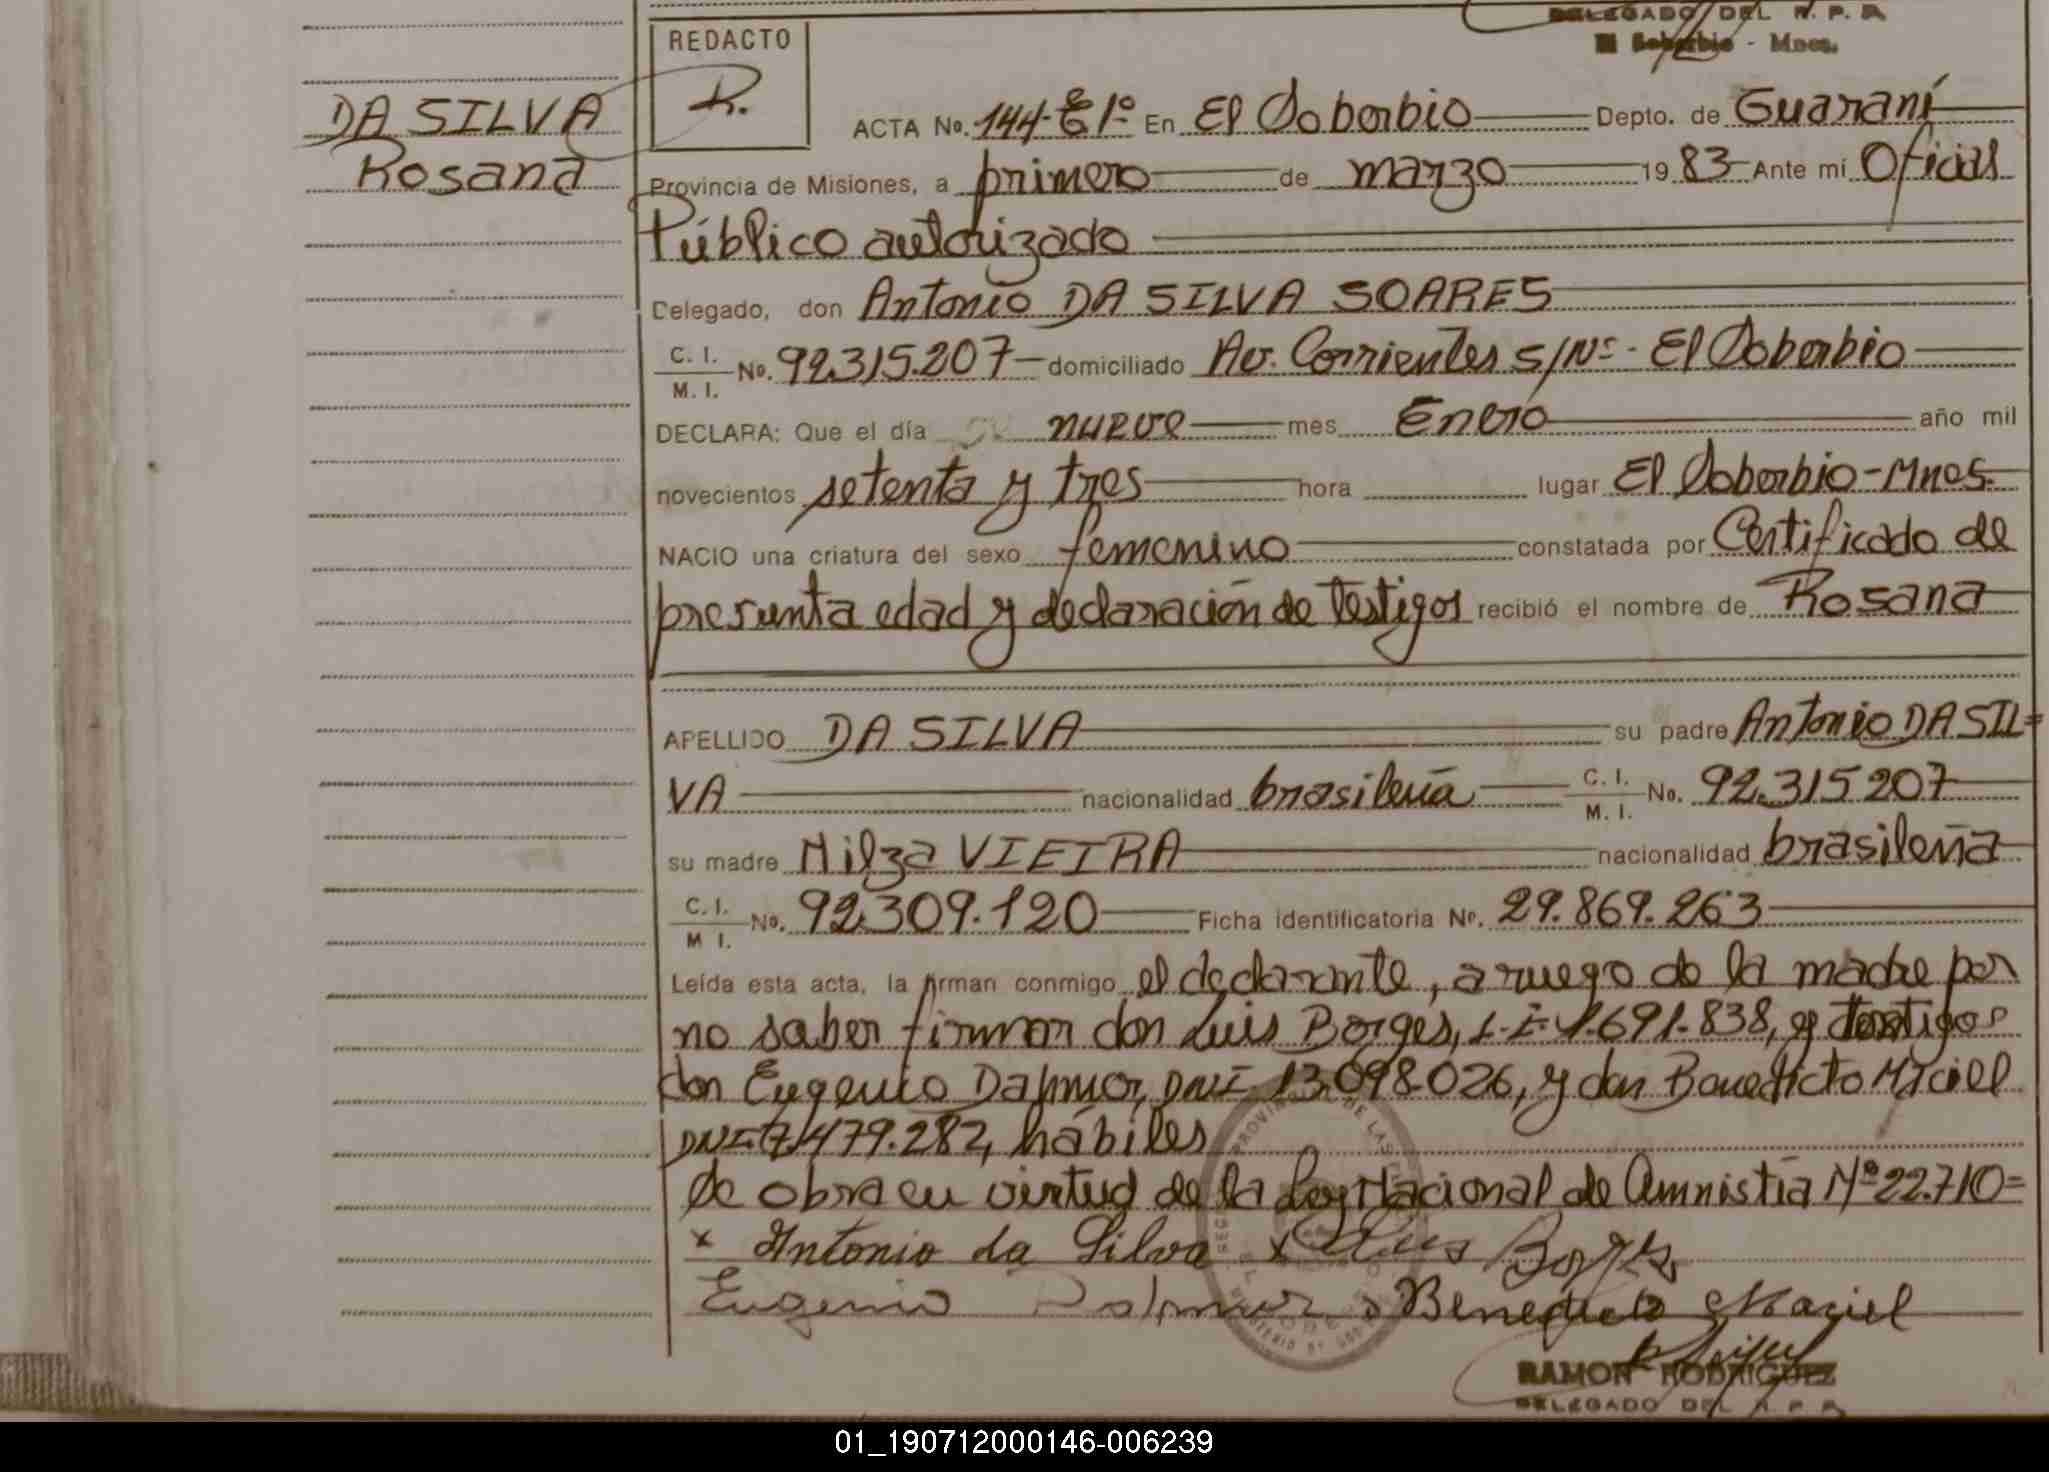 DELEGADO DEL R. P. P.
El Soberbio - Mnes.
REDACTO
R.
DA SILVA
Rosana
ACTA No. 144-E1º En El Soberbio Depto. de Guaraní
Provincia de Misiones, a primero de marzo 19 83 Ante mí Oficial
Público autorizado
Delegado, don Antonio DA SILVA SOARES
C. I.
M. I. No. 92.315.207 domiciliado Av. Corrientes S/Nº - El Soberbio
DECLARA: Que el día nueve mes Enero año mil
novecientos setenta y tres hora lugar El Soberbio-Mnes.
NACIO una criatura del sexo femenino constatada por Certificado de
presunta edad y declaración de testigos recibió el nombre de Rosana
APELLIDO DA SILVA su padre Antonio DA SIL=
VA nacionalidad brasileña C. I. M. I. No. 92.315207
su madre Nilza VIEIRA nacionalidad brasileña
C. I. M I. No. 92.309.120 Ficha identificatoria Nº. 29.869.263
Leída esta acta, la firman conmigo el declarante, a ruego de la madre por
no saber firmar don Luis Borges, L.E. 1.691.838, y testigos
don Eugenio Dalmor, DNI 13.098.026, y don Benedicto Maciel
DNI 7.479.282, hábiles
de obra en virtud de la Ley Nacional de Amnistía Nº 22.710=
x Antonio da Silva x Luis Borges
Eugenio Dalmor x Benedicto Maciel
RAMON RODRIGUEZ
DELEGADO DEL R. P. P.
01_190712000146-006239